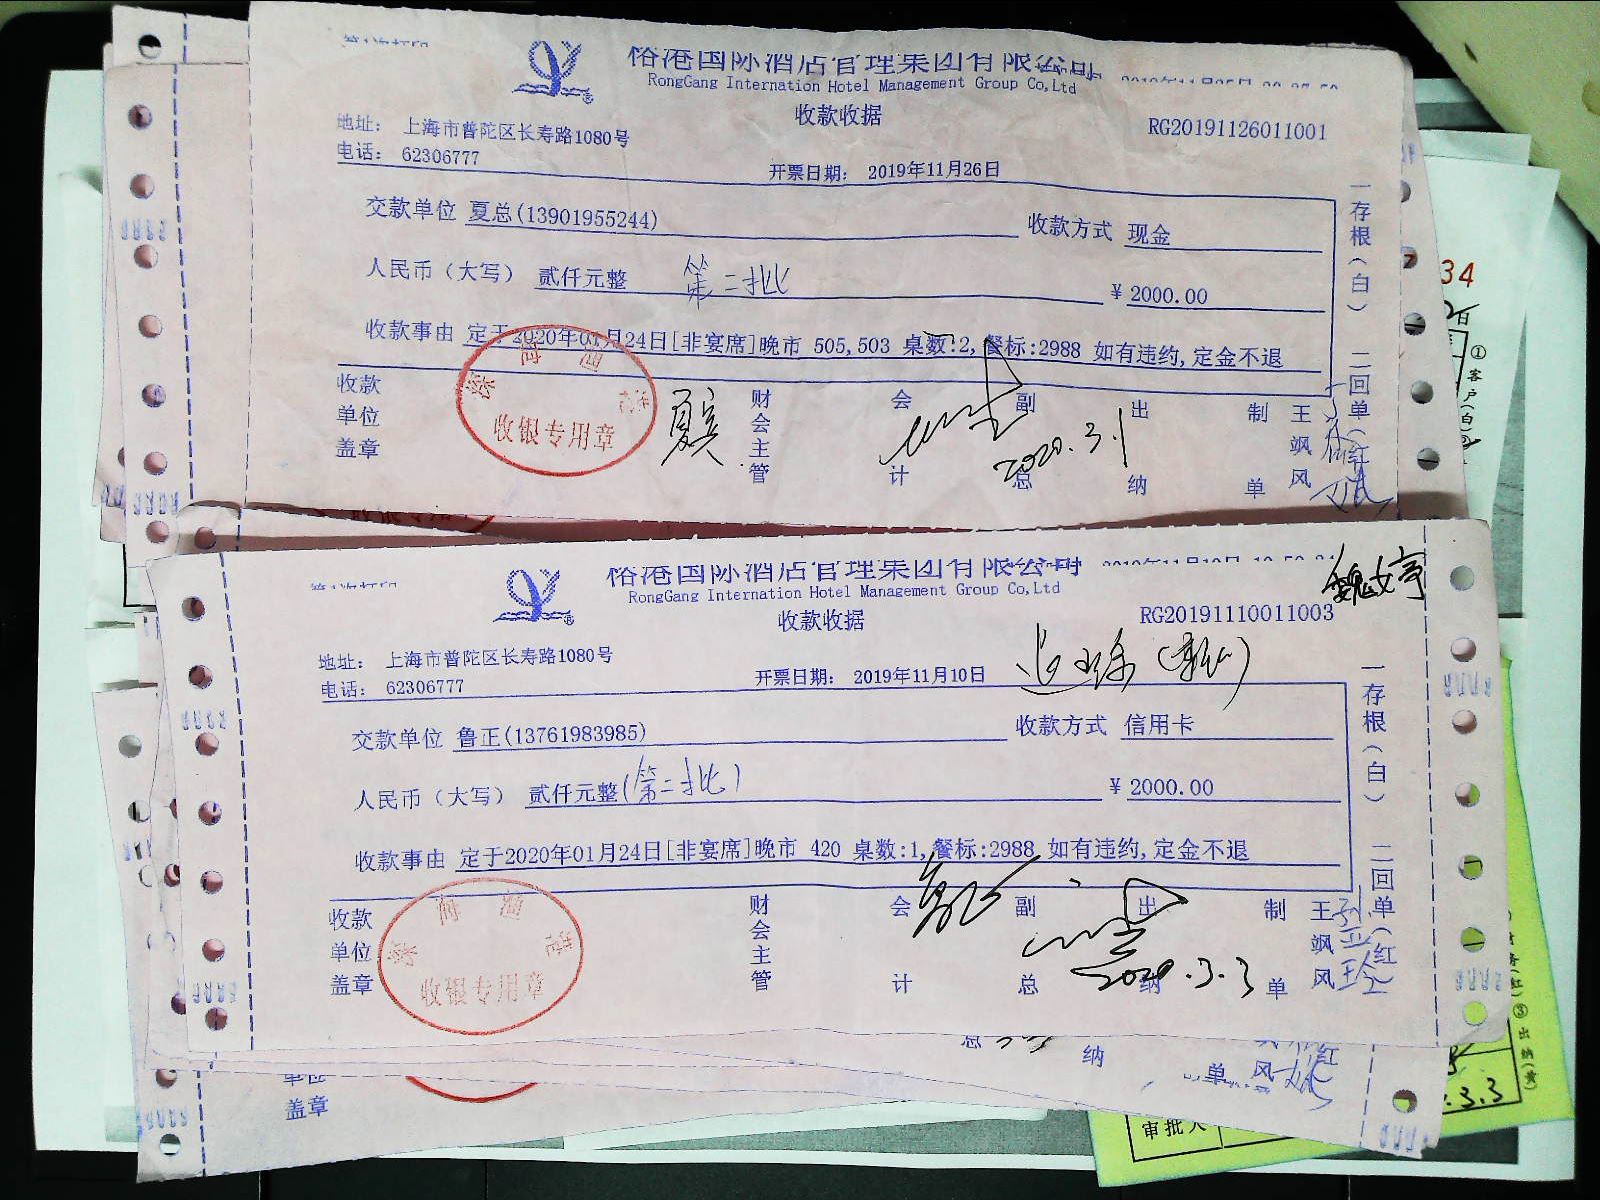 裕港国际酒店管理集团有限公司
RongGang Internation Hotel Management Group Co,Ltd
收款收据
RG20191126011001
地址： 上海市普陀区长寿路1080号
电话： 62306777
开票日期： 2019年11月26日
交款单位 夏总(13901955244)
收款方式 现金
人民币（大写） 贰仟元整 第二批
￥2000.00
收款事由 定于2020年01月24日[非宴席]晚市 505,503 桌数:2,餐标:2988 如有违约,定金不退
一存根（白） 二回单（红）
收款单位盖章
收银专用章
财会主管
会计
副总
出纳
制单
王飒风
2020.3.1
34
①客户(白)
裕港国际酒店管理集团有限公司
RongGang Internation Hotel Management Group Co,Ltd
收款收据
RG20191110011003
地址： 上海市普陀区长寿路1080号
电话： 62306777
开票日期： 2019年11月10日
交款单位 鲁正(13761983985)
收款方式 信用卡
人民币（大写） 贰仟元整(第二批)
￥2000.00
收款事由 定于2020年01月24日[非宴席]晚市 420 桌数:1,餐标:2988 如有违约,定金不退
一存根（白） 二回单（红）
收款单位盖章
收银专用章
财会主管
会计
副总
出纳
制单
王飒风
2020.3.3
总
纳
单
风
盖章
审批人
.3.3
③出纳(黄)